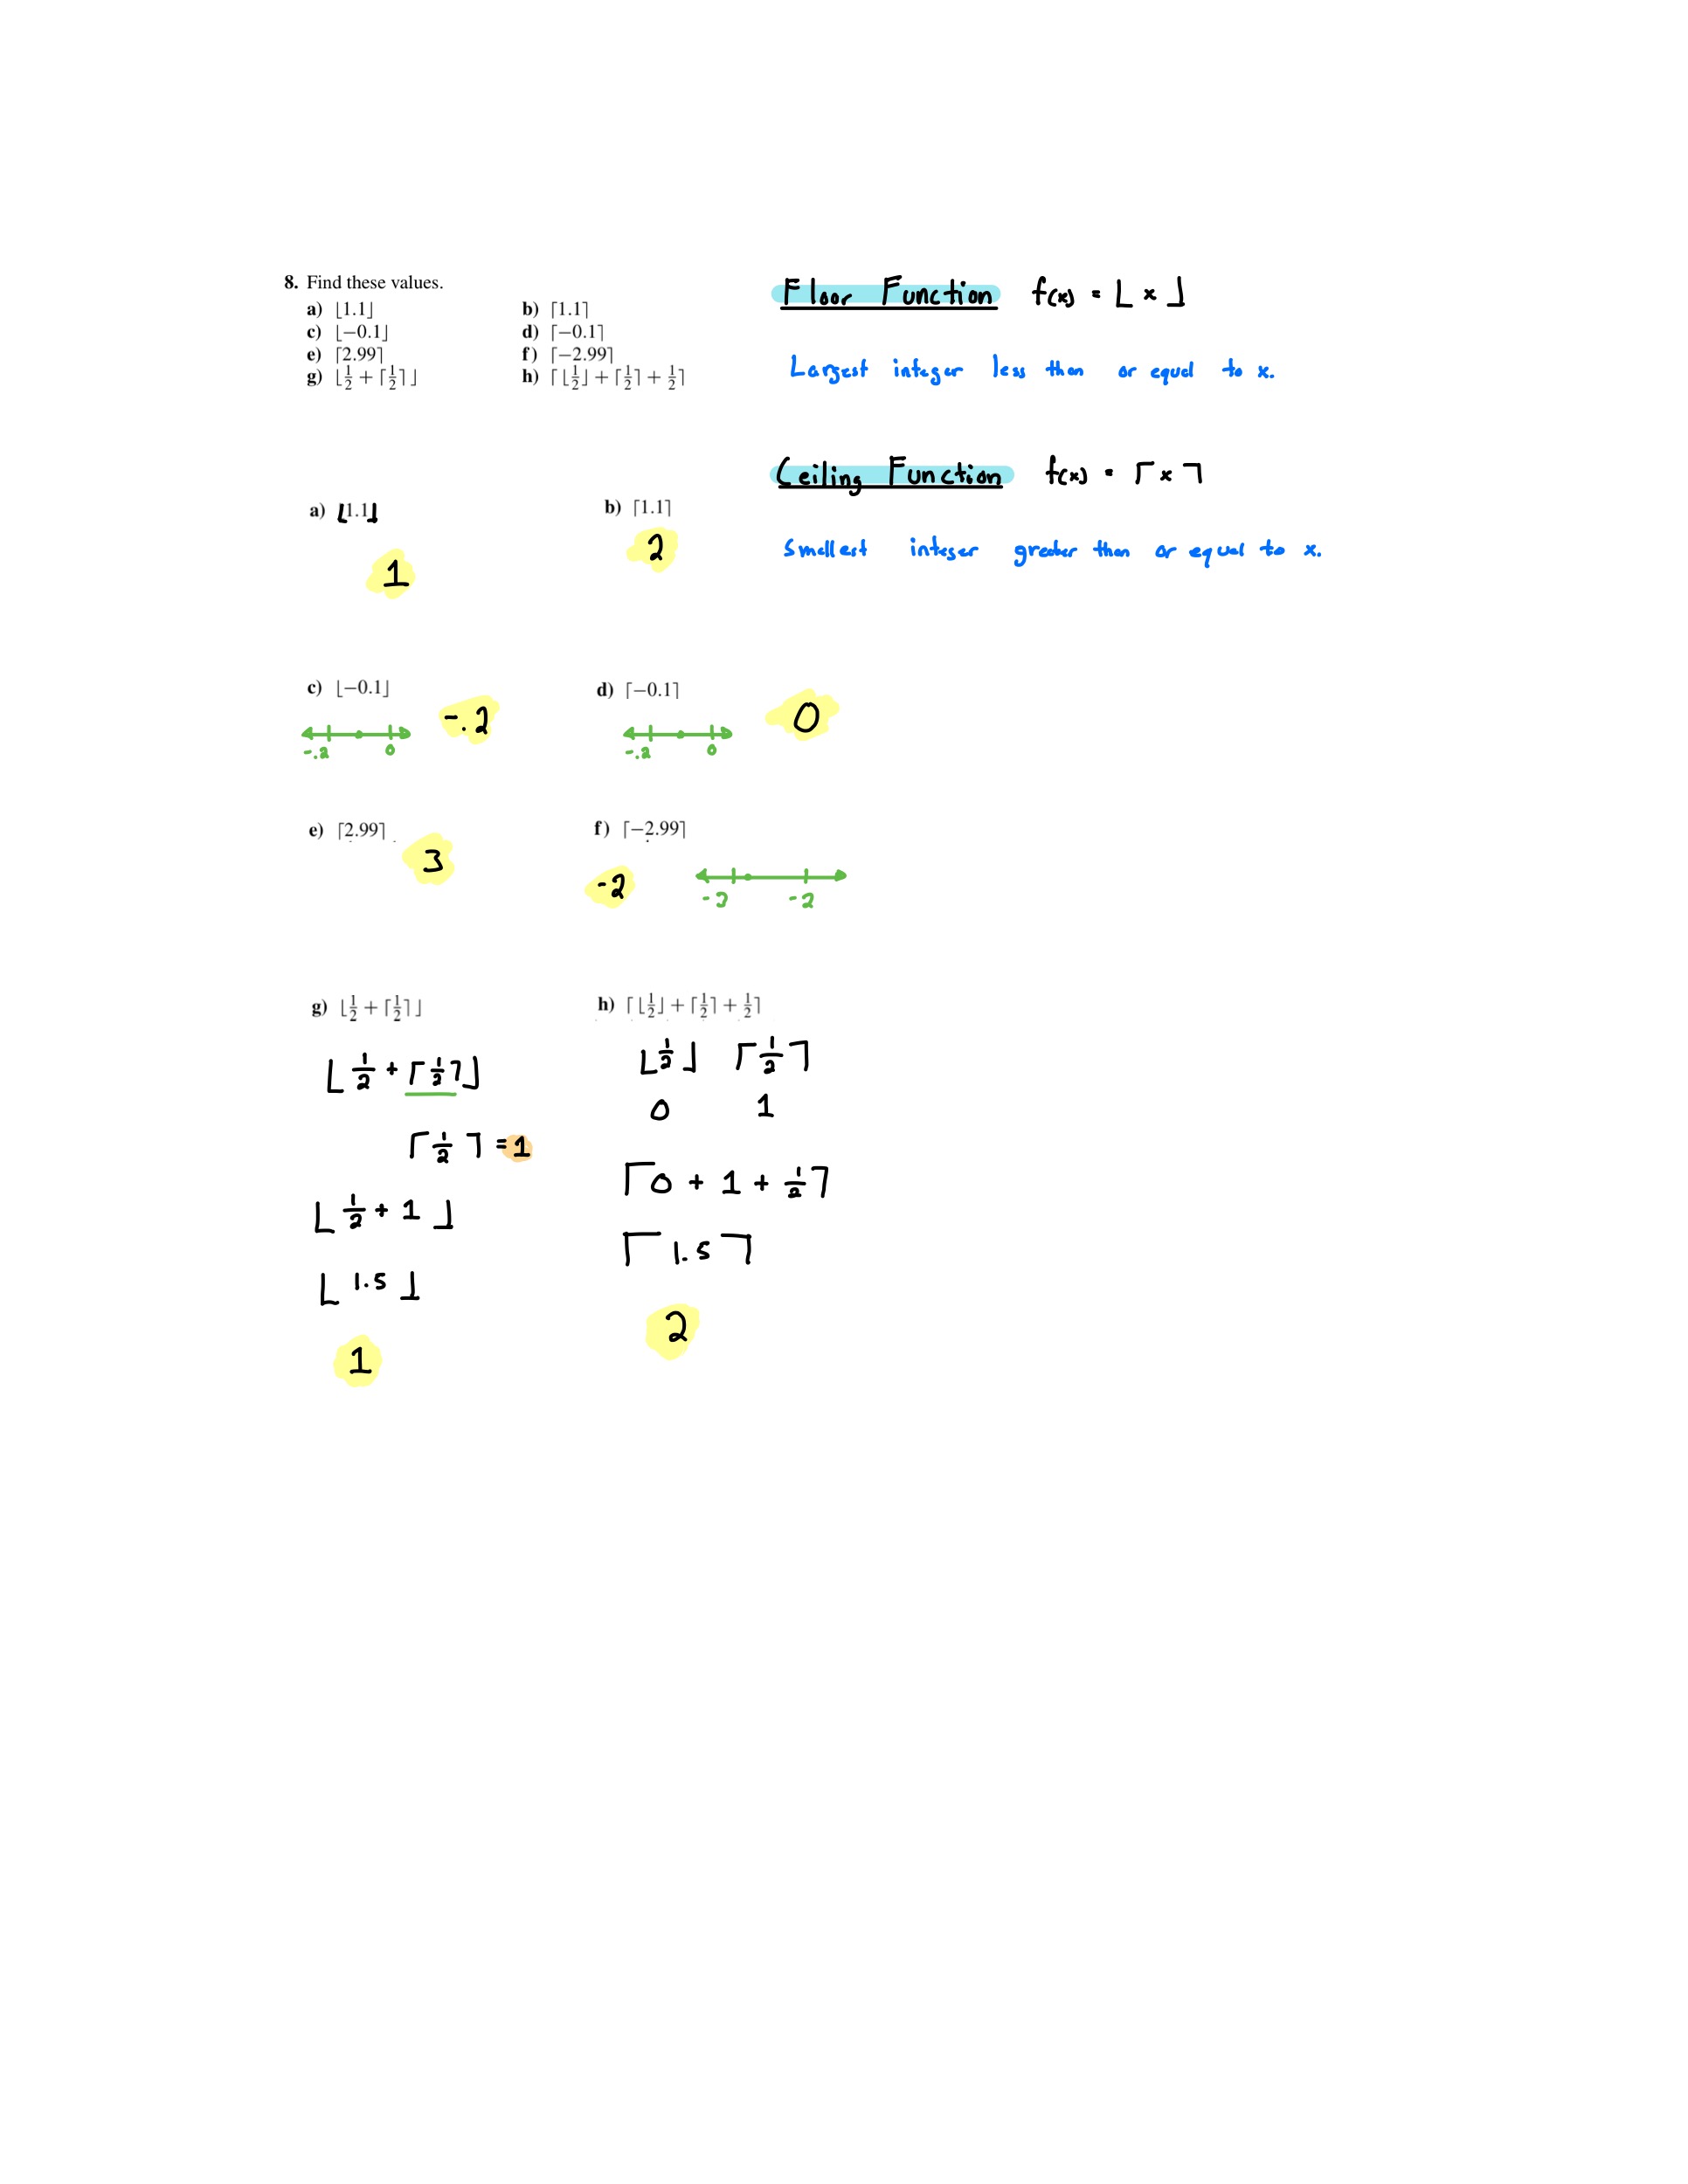 8. Find these values.
a) ⌊1.1⌋ b) ⌈1.1⌉
c) ⌊−0.1⌋ d) ⌈−0.1⌉
e) ⌈2.99⌉ f) ⌈−2.99⌉
g) ⌊1/2 + ⌈1/2⌉⌋ h) ⌈⌊1/2⌋ + ⌈1/2⌉ + 1/2⌉
Floor Function f(x) = ⌊x⌋
Largest integer less than or equal to x.
Ceiling Function f(x) = ⌈x⌉
Smallest integer greater than or equal to x.
a) ⌊1.1⌋
1
b) ⌈1.1⌉
2
c) ⌊−0.1⌋
-.2
-.2 0
d) ⌈−0.1⌉
0
-.2 0
e) ⌈2.99⌉
3
f) ⌈−2.99⌉
-2
-3 -2
g) ⌊1/2 + ⌈1/2⌉⌋
⌊1/2 + ⌈1/2⌉⌋
⌈1/2⌉ = 1
⌊1/2 + 1⌋
⌊1.5⌋
1
h) ⌈⌊1/2⌋ + ⌈1/2⌉ + 1/2⌉
⌊1/2⌋ ⌈1/2⌉
0 1
⌈0 + 1 + 1/2⌉
⌈1.5⌉
2